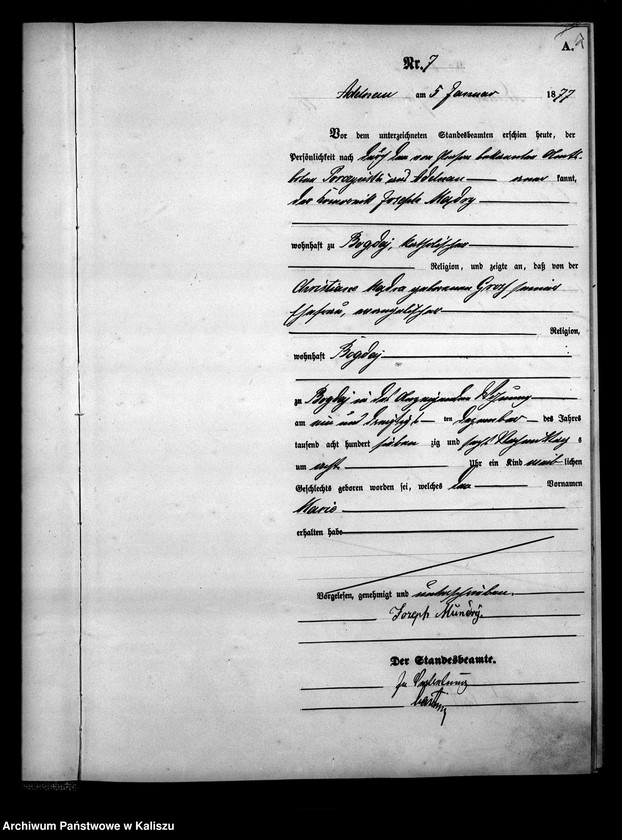 A.
Nr. 7
Adelnau am 5 Januar 1877
Vor dem unterzeichneten Standesbeamten erschien heute, der
Persönlichkeit nach durch den von Person bekannten Amts-
boten aus Adelnau erkannt,
der Komornik Joseph Mądry
wohnhaft zu Bogdaj, katholischer
Religion, und zeigte an, daß von der
Christiane Mądra geborenen seiner
Ehefrau, evangelischer
Religion,
wohnhaft Bogdaj
zu Bogdaj in des Anzeigenden Wohnung
am ein und dreißigsten Dezember des Jahres
tausend acht hundert sieben zig und sechs Nachmittags
um acht Uhr ein Kind weiblichen
Geschlechts geboren worden sei, welches den Vornamen
Marie
erhalten habe
Vorgelesen, genehmigt und unterschrieben.
Joseph Mundry.
Der Standesbeamte.
In Vertretung
Archiwum Państwowe w Kaliszu